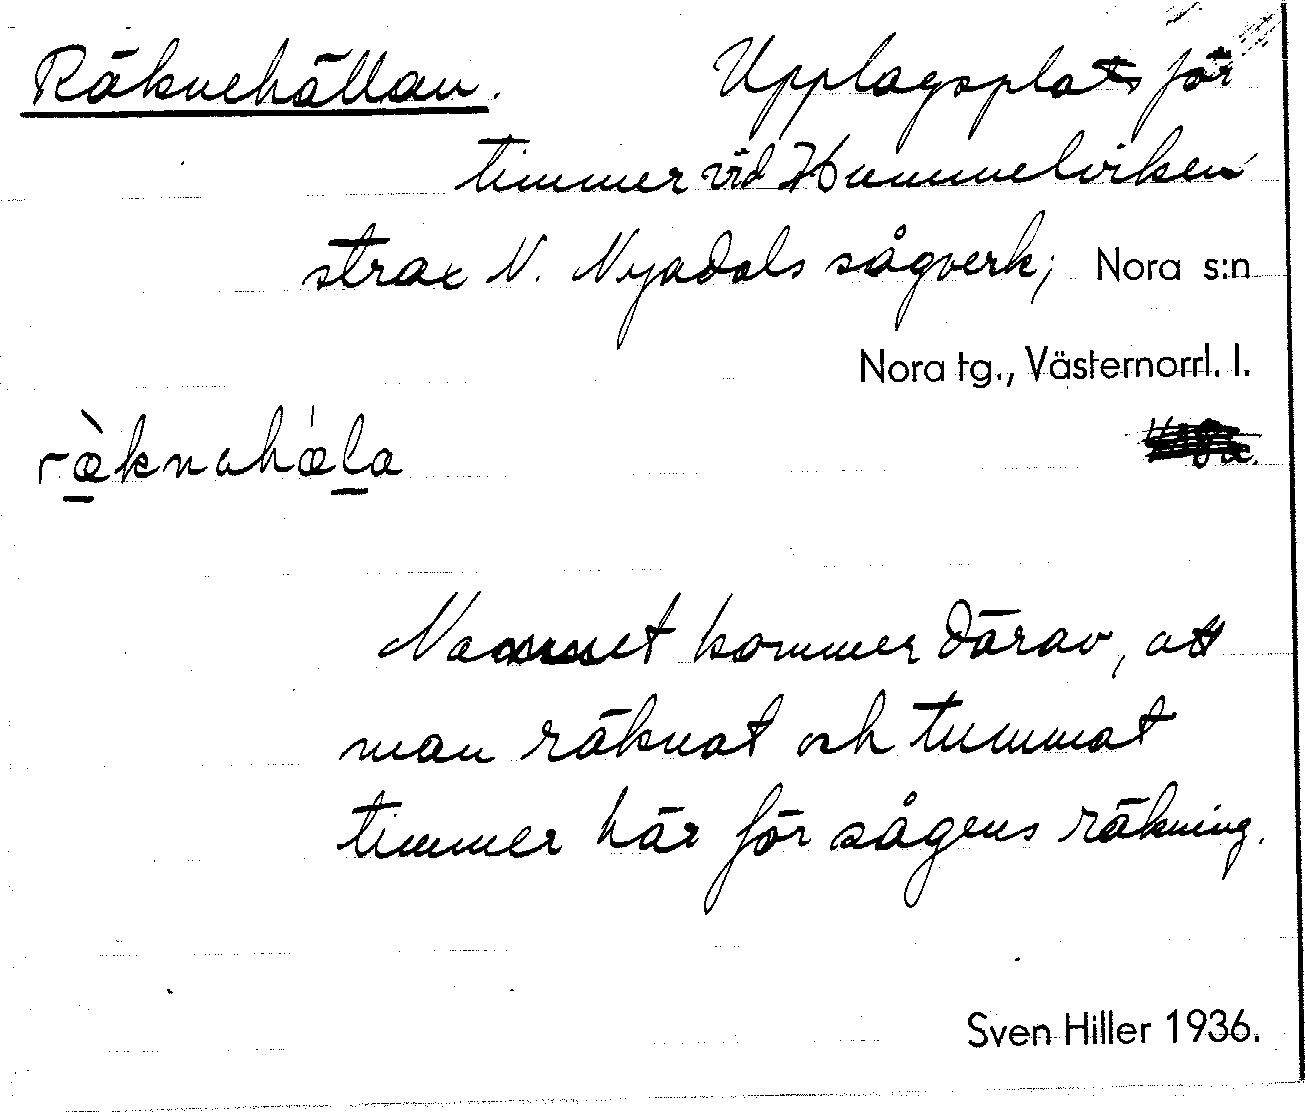 Räknehällan. Upplagsplats för
timmer vid Hummelviken
strax N. Nyadals sågverk; Nora s:n
Nora tg., Västernorrl. l.
ræ̀knahǽla
Namnet kommer därav, att
man räknat och tummat
timmer här för sågens räkning.
Sven Hiller 1936.